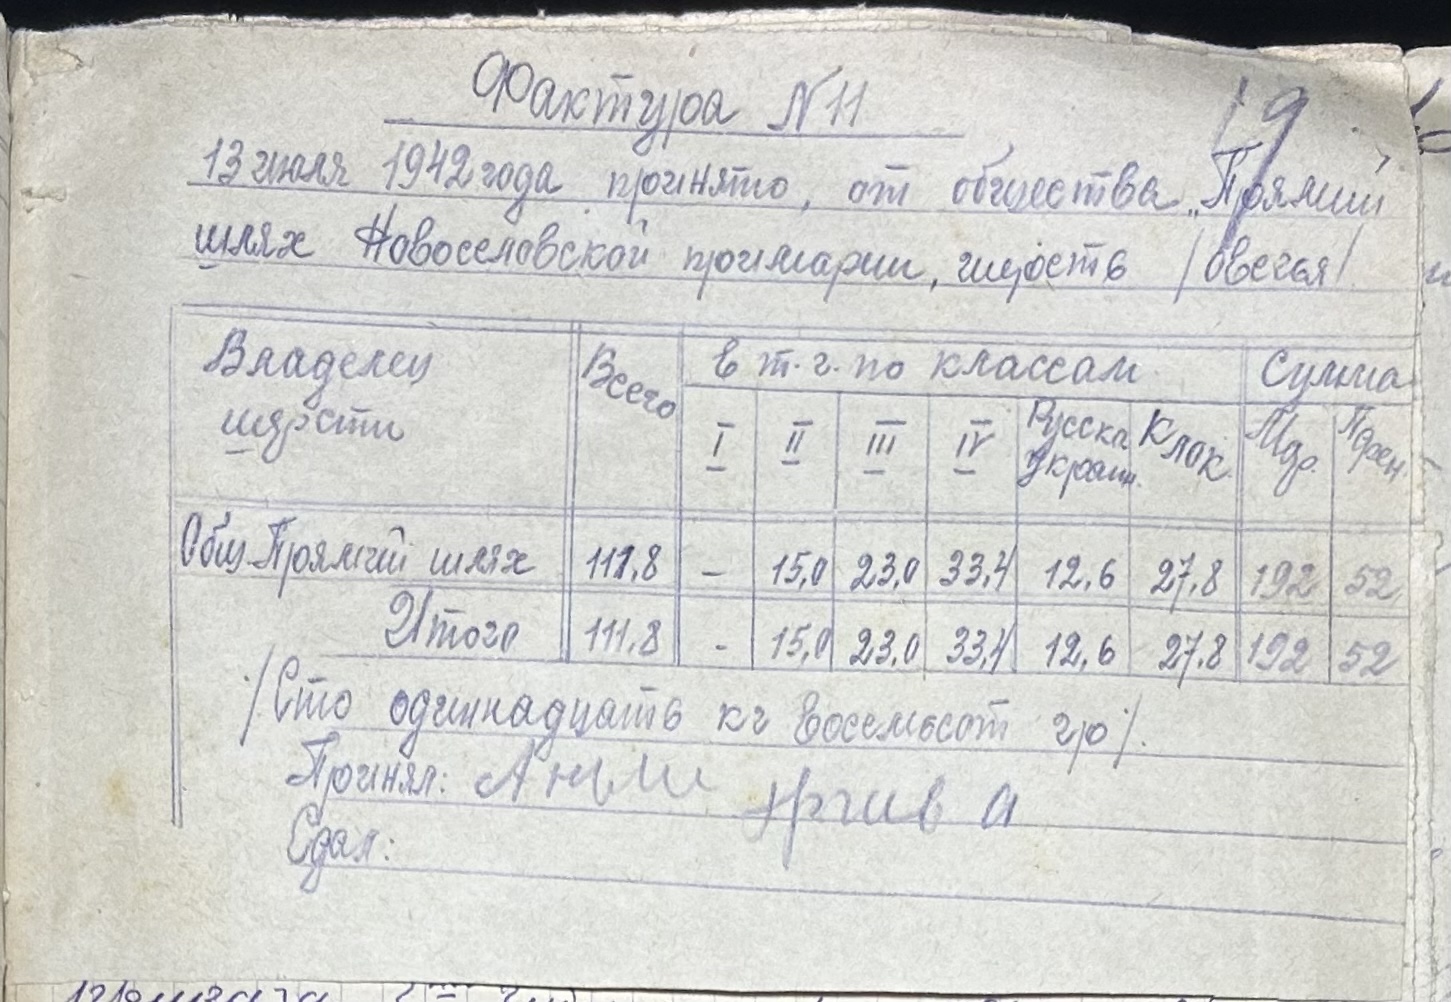 Фактура N 11
19
13 июля 1942 года принято, от общества „Прямий
шлях Новоселовской примарии, шерсть /овечья/
Владелец шерсти Всего в т.ч. по классам Сумма
I II III IV Русска Украин. Клок. Мар. Пфен.
Общ. Прямий шлях 111.8 – 15,0 23,0 33,4 12,6 27,8 192 52
Итого 111.8 - 15,0 23,0 33,4 12,6 27,8 192 52
/Сто одиннадцать кг восемьсот гр/.
Принял:
Сдал: